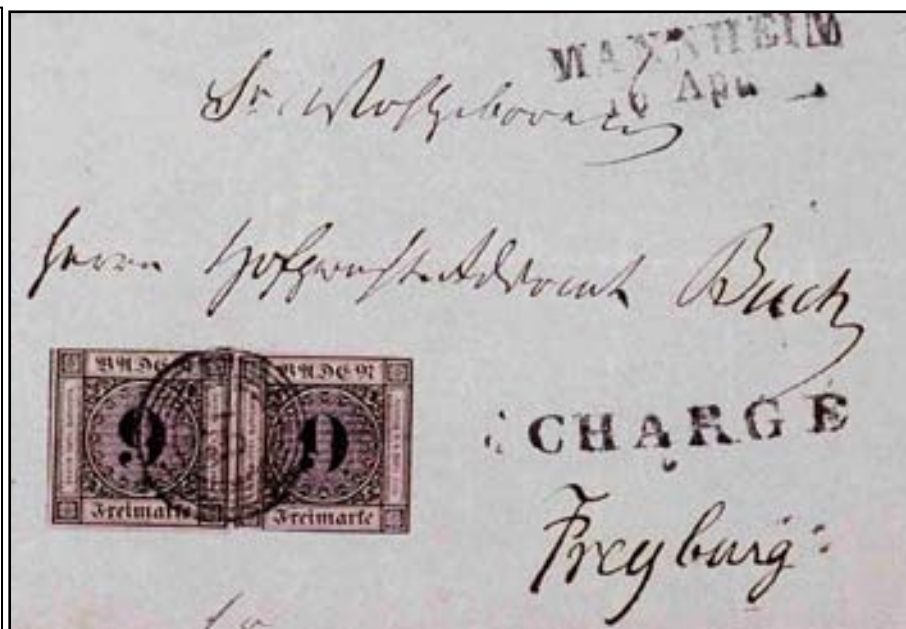 MANNHEIM
16 Apr.
Sr. Wohlgeboren
Herrn Hofgerichts Advocat Buch
BADEN BADEN
9 9
Freimarke Freimarke
CHARGÉ
Freyburg: